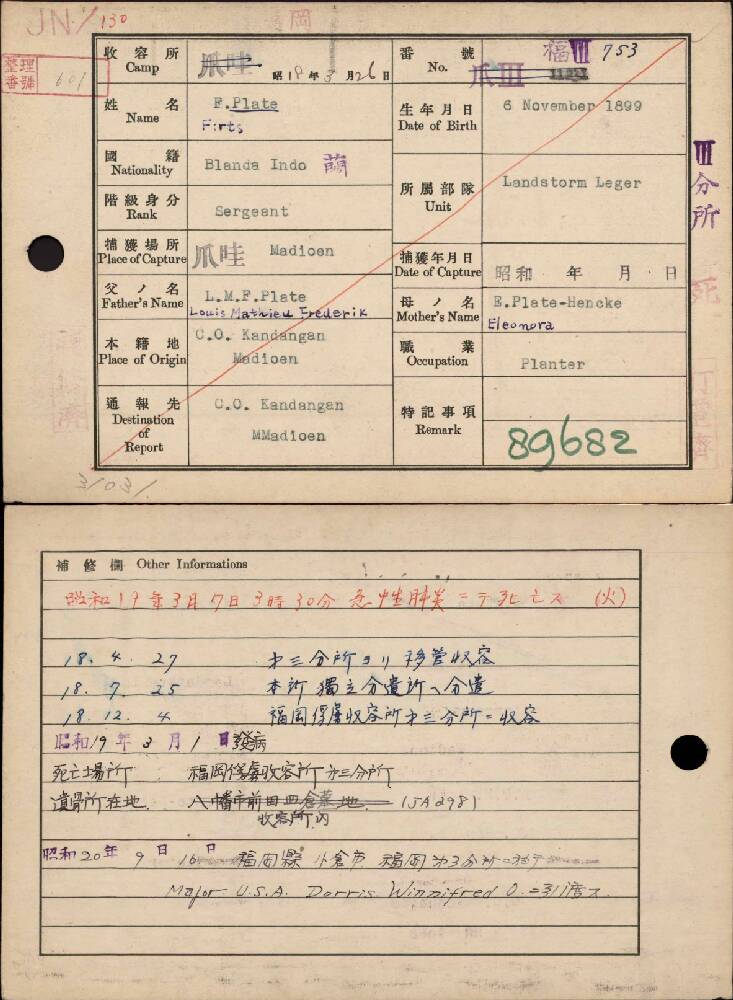 JN-/130
岡
整理番號 601
收容所 Camp 爪哇 昭18年3月26日
番號 No. 福III 753
爪III
姓名 Name F.Plate
Firts
生年月日 Date of Birth 6 November 1899
國籍 Nationality Blanda Indo 蘭
所屬部隊 Unit Landstorm Leger
III分所
階級身分 Rank Sergeant
捕獲場所 Place of Capture 爪哇 Madioen
捕獲年月日 Date of Capture 昭和 年 月 日
死
父ノ名 Father's Name L.M.F.Plate
Louis Mathieu Frederik
母ノ名 Mother's Name E.Plate-Hencke
Eleonora
本籍地 Place of Origin C.O. Kandangan
Madioen
職業 Occupation Planter
通報先 Destination of Report C.O. Kandangan
MMadioen
特記事項 Remark 89682
31031
補修欄 Other Informations
昭和19年3月7日3時30分急性肺炎ニテ死亡ス (火)
18. 4. 27 才三分所ヨリ移管収容
18. 7. 25 本所獨立分遣所へ分遣
18. 12. 4 福岡俘虜収容所才三分所ニ収容
昭和19年3月1日發病
死亡場所 福岡俘虜収容所才三分所
遺骨所在地 八幡市前田 地 1JA2981
收容所内
昭和20年9日16日 福岡縣小倉市福岡才3分所ニ於テ
Major U.S.A. Dorris Winnifred O. ニ引渡ス